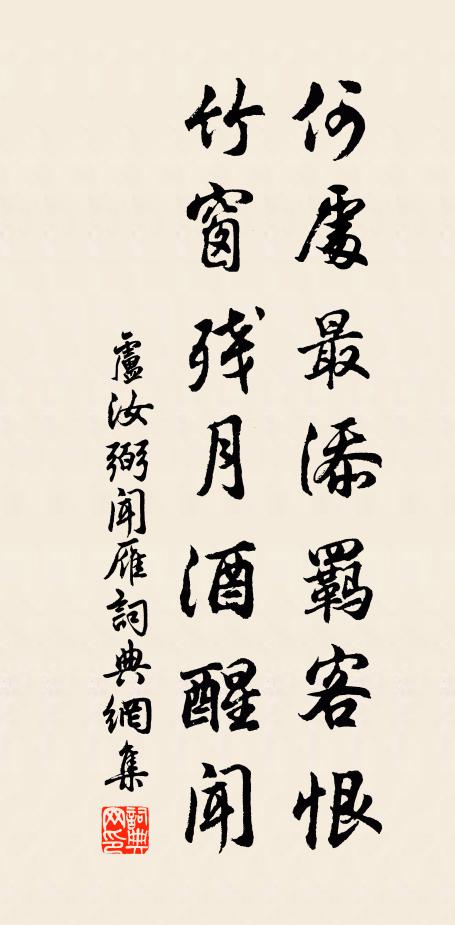 何處最添羈客恨
竹窗残月酒醒聞
盧汝弼聞雁詞典網集
詞典网印